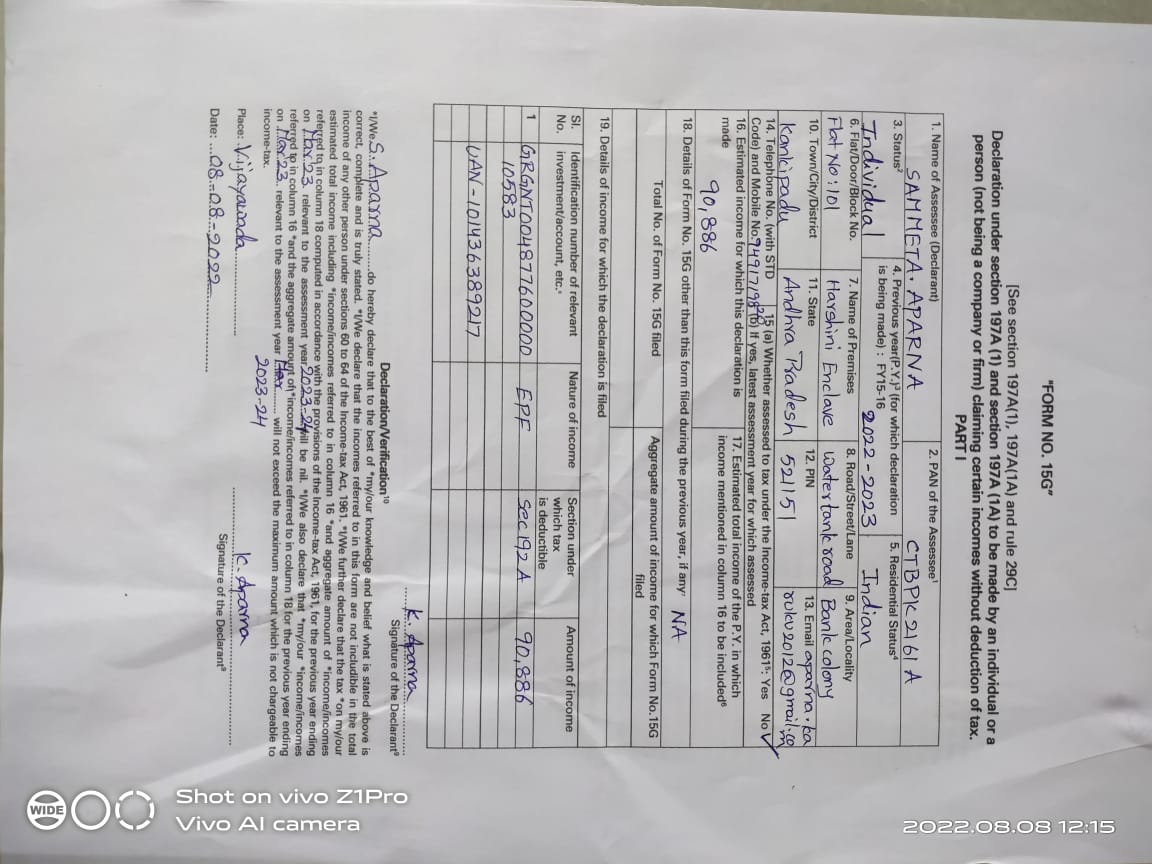 "FORM NO. 15G"
[See section 197A(1), 197A(1A) and rule 29C]
Declaration under section 197A (1) and section 197A (1A) to be made by an individual or a
person (not being a company or firm) claiming certain incomes without deduction of tax.
PART I
1. Name of Assessee (Declarant)
SAMMETA. APARNA
2. PAN of the Assessee¹
CTBPK2161A
3. Status²
Individual
4. Previous year(P.Y.)³ (for which declaration
is being made) : FY15-16
2022-2023
5. Residential Status⁴
Indian
6. Flat/Door/Block No.
Flat No:101
7. Name of Premises
Harshini Enclave
8. Road/Street/Lane
Watertank road
9. Area/Locality
Bank colony
10. Town/City/District
Kankipadu
11. State
Andhra Pradesh
12. PIN
521151
13. Email aparna.ka
ruku2012@gmail.co
m
14. Telephone No. (with STD
Code) and Mobile No.
15 (a) Whether assessed to tax under the Income-tax Act, 1961⁵: Yes No✓
(b) If yes, latest assessment year for which assessed
16. Estimated income for which this declaration is
made
90,886
17. Estimated total income of the P.Y. in which
income mentioned in column 16 to be included⁶
18. Details of Form No. 15G other than this form filed during the previous year, if any⁷ NA
Total No. of Form No. 15G filed
Aggregate amount of income for which Form No.15G
filed
19. Details of income for which the declaration is filed
Sl.
No.
Identification number of relevant
investment/account, etc.⁸
Nature of income
Section under
which tax
is deductible
Amount of income
1 GRGNT004877600000 EPF Sec 192 A 90,886
10583
UAN-101436389217
K. Aparna
Signature of the Declarant⁹
Declaration/Verification¹⁰
*I/We S. Aparna do hereby declare that to the best of *my/our knowledge and belief what is stated above is
correct, complete and is truly stated. *I/We declare that the incomes referred to in this form are not includible in the total
income of any other person under sections 60 to 64 of the Income-tax Act, 1961. *I/We further declare that the tax *on my/our
estimated total income including *income/incomes referred to in column 16 *and aggregate amount of *income/incomes
referred to in column 18 computed in accordance with the provisions of the Income-tax Act, 1961, for the previous year ending
on Mar'23 relevant to the assessment year 2023-24 will be nil. *I/We also declare that *my/our *income/incomes
referred to in column 16 *and the aggregate amount of *income/incomes referred to in column 18 for the previous year ending
on Mar'23 relevant to the assessment year will not exceed the maximum amount which is not chargeable to
income-tax.
2023-24
Place: Vijayawada
Date: 08-08-2022
K. Aparna
Signature of the Declarant⁹
2022.08.08 12:15
Shot on vivo Z1Pro
Vivo AI camera
WIDE